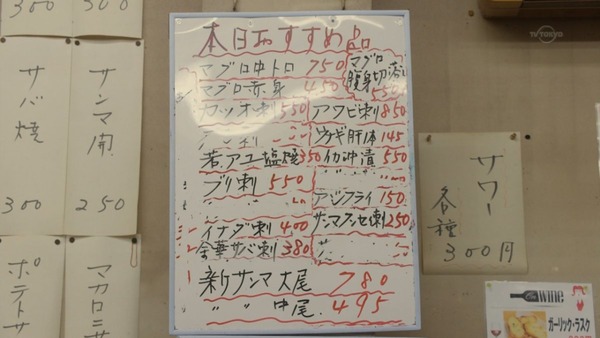 300
300
TV TOKYO
サバ焼
300
サンマ開
250
ポテトサ
マカロニサ
本日おすすめ品
マグロ中トロ 750
マグロ赤身 450
マグロ
腹身切落し
550
カツオ刺 550
アワビ刺 850
ウナギ肝1本 145
若アユ塩焼 350
イカ沖漬 550
ブリ刺 550
アジフライ 150
イナダ刺 400
250
金華サバ刺 380
新サンマ大尾 780
〃 〃 中尾 495
サワー
各種
300円
wine
ガーリック・ラスク